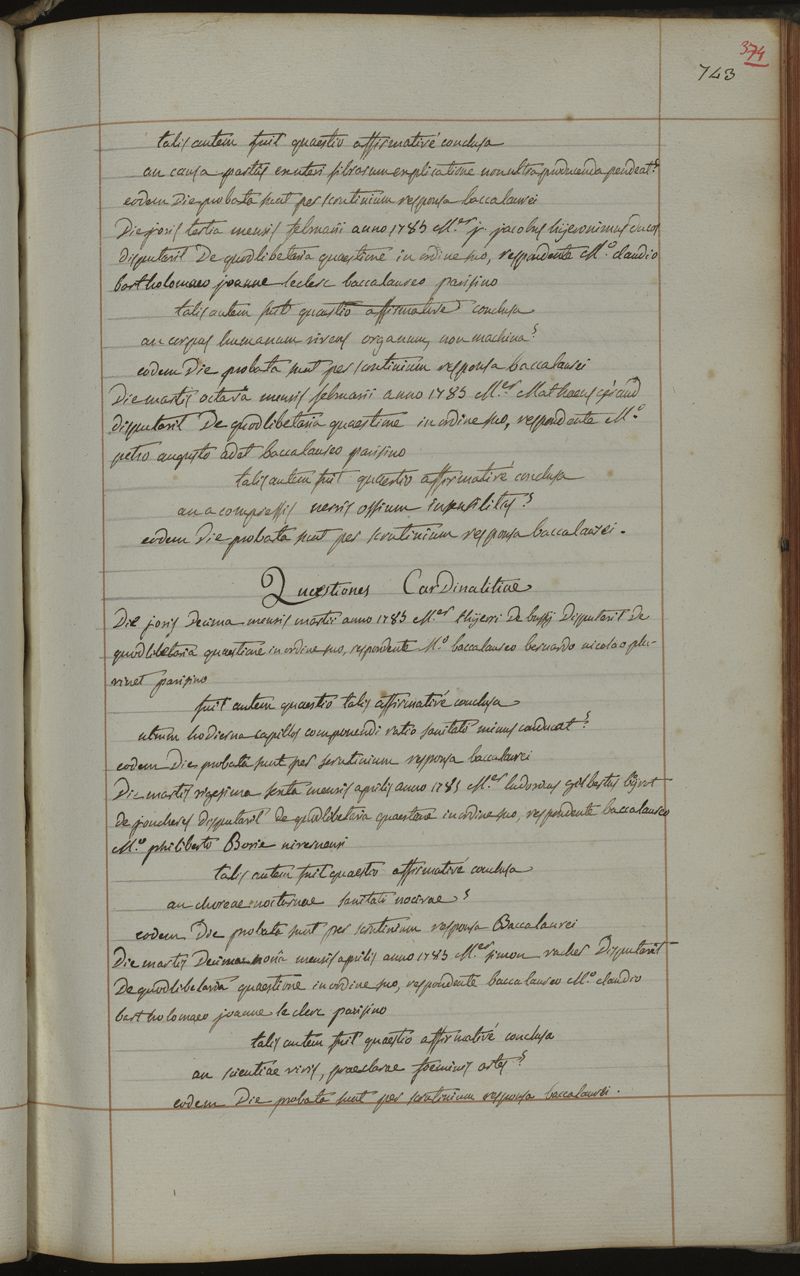 374
743
talis autem fuit quaestio affirmativé conclusa
an causa partûs ex uteri fibrarum explicatione non ultra producenda pendeat?
eodem Die probata sunt per scrutinium responsa baccalaurei
Die jovis tertia mensis februarii anno 1785 M.er j. jacobus hijeronimus
disputavit De quodlibetaria quaestione in ordine suo, respondente M.o claudio
bartholomaeo joanne leclerc baccalaureo parisino
talis autem fuit quaestio affirmative conclusa
an corpus humanum vivens organum, non machina?
eodem Die probata sunt per scrutinium responsa baccalaurei
Die martis octava mensis februarii anno 1785 M.er Mathaeus
disputavit De quodlibetaria quaestione in ordine suo, respondente M.o
petro augusto adet baccalaureo parisino
talis autem fuit quaestio affirmativé conclusa
an a compressis nervis ossium insensilitas?
eodem Die probata sunt per scrutinium responsa baccalaurei.
Quaestiones Cardinalitiae
Die jovis Decima mensis martii anno 1785 M.er thijerri De bussy Disputavit De
quodlibetaria quaestione in ordine suo, respondente M.o baccalaureo bernardo nicolao plu-
vinet parisino
fuit autem quaestio talis affirmativé conclusa
utrum hodierna capillos componendi ratio sanitati minus conducat?
eodem Die probata sunt per scrutinium responsa baccalaurei
Die martis vigesima sexta mensis aprilis anno 1785 M.er ludovicus gilbertus
de joncheres disputavit de quodlibetaria quaestione in ordine suo, respondente baccalaureo
M.o philiberto Borie nivernensi
talis autem fuit quaestio affirmativé conclusa
an choreae nocturnae sanitati nocivae?
eodem Die probata sunt per scrutinium responsa Baccalaurei
Die martis Decima nonâ mensis aprilis anno 1785 M.er simon vacher Disputavit
De quodlibetaria quaestione in ordine suo, respondente baccalaureo M.o claudio
bartholomaeo joanne le clerc parisino
talis autem fuit quaestio affirmativé conclusa
an scientiae viris, praeclarae foeminis artes?
eodem Die probata sunt per scrutinium responsa baccalaurei.